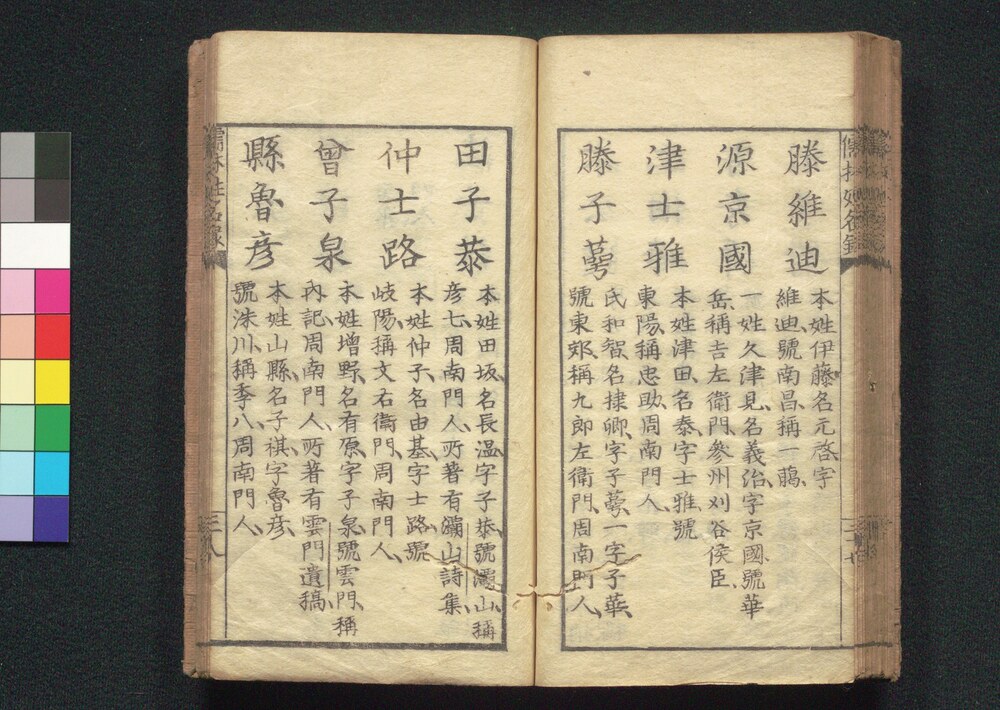 滕維迪
本姓伊藤、名元啓、字
維迪、號南昌、稱一鶚、
源京國
一姓久津見、名義治、字京國、號華
岳、稱吉左衛門、參州刈谷侯臣、
津士雅
本姓津田、名泰、字士雅、號
東陽、稱忠助、周南門人、
滕子蕚
氏和智、名棣卿、字子蕚、一字子華、
號東郊、稱九郎左衛門、周南門人、
儒林姓名錄
三十七
田子恭
本姓田坂、名長温、字子恭、號灞山、稱
彦七、周南門人、所著有灞山詩集、
仲士路
本姓仲子、名由基、字士路、號
岐陽、稱文右衛門、周南門人、
曾子泉
本姓增野、名有原、字子泉、號雲門、稱
内記、周南門人、所著有雲門遺稿、
縣魯彦
本姓山縣、名子祺、字魯彦、
號洙川、稱季八、周南門人、
儒林姓名錄
三十八